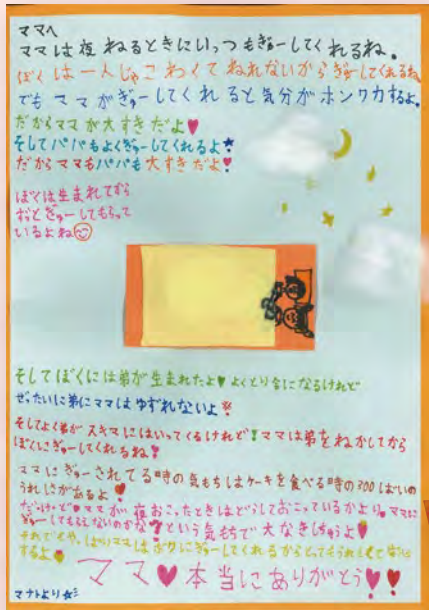 ママへ
ママは夜ねるときにいっつもぎゅーしてくれるね。
ぼくは一人じゃこわくてねれないからぎゅーしてくれるね
でもママがぎゅーしてくれると気分がホンワカするよ。
だからママが大すきだよ♥
そしてパパもよくぎゅーしてくれるよ★
だからママもパパも大すきだよ♥
ぼくは生まれてから
ずっとぎゅーしてもらって
いるよね
そしてぼくには弟が生まれたよ♥よくとり合になるけれど
ぜったいに弟にママはゆずれないよ
そしてよく弟がスキマにはいってくるけれど!ママは弟をねかしてから
ぼくにぎゅーしてくれるね!
ママにぎゅーされてる時の気もちはケーキを食べる時の300ばいの
うれしさがあるよ
だけど♥ママが夜おこったときはどうしておこっているかより、ママに
ぎゅーしてもらえないのかな?という気もちで大なきしちゃうよ
それでも、やっぱりママはボクにぎゅーしてくれるからとてもうれしくて安心
するよ
ママ♥本当にありがとう♥♥
マナトより